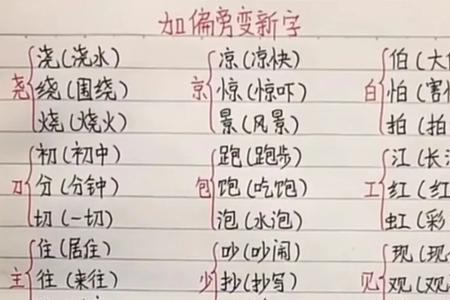 加偏旁变新字
浇(浇水) 凉(凉快) 伯(大
尧 绕(围绕) 京 惊(惊吓) 白 怕(害怕
烧(烧火) 景(风景) 拍(拍
初(初中) 跑(跑步) 江(长
刀 分(分钟) 包 饱(吃饱) 工 红(红
切(一切) 泡(水泡) 虹(彩
住(居住) 吵(吵闹) 现(现
主 往(来往) 少 抄(抄写) 见 观(观